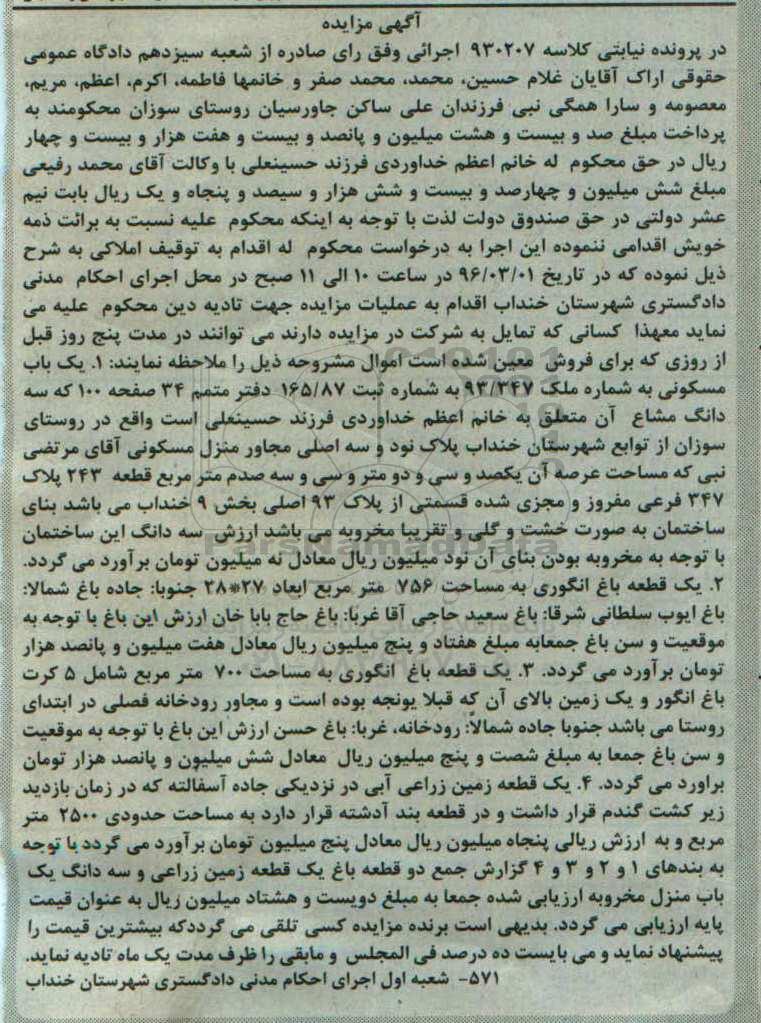 آگهی مزایده
در پرونده نیابتی کلاسه ۹۳۰۲۰۷ اجرائی وفق رای صادره از شعبه سیزدهم دادگاه عمومی
حقوقی اراک آقایان غلام حسین، محمد، محمد صفر و خانمها فاطمه، اکرم، اعظم، مریم،
معصومه و سارا همگی نبی فرزندان علی ساکن جاورسیان روستای سوزان محکومند به
پرداخت مبلغ صد و بیست و هشت میلیون و پانصد و بیست و هفت هزار و بیست و چهار
ریال در حق محکوم له خانم اعظم خداوردی فرزند حسینعلی با وکالت آقای محمد رفیعی
مبلغ شش میلیون و چهارصد و بیست و شش هزار و سیصد و پنجاه و یک ریال بابت نیم
عشر دولتی در حق صندوق دولت لذت با توجه به اینکه محکوم علیه نسبت به برائت ذمه
خویش اقدامی ننموده این اجرا به درخواست محکوم له اقدام به توقیف املاکی به شرح
ذیل نموده که در تاریخ ۹۶/۰۳/۰۱ در ساعت ۱۰ الی ۱۱ صبح در محل اجرای احکام مدنی
دادگستری شهرستان خنداب اقدام به عملیات مزایده جهت تادیه دین محکوم علیه می
نماید معهذا کسانی که تمایل به شرکت در مزایده دارند می توانند در مدت پنج روز قبل
از روزی که برای فروش معین شده است اموال مشروحه ذیل را ملاحظه نمایند: ۱. یک باب
مسکونی به شماره ملک ۹۳/۳۴۷ به شماره ثبت ۱۶۵/۸۷ دفتر متمم ۳۴ صفحه ۱۰۰ که سه
دانگ مشاع آن متعلق به خانم اعظم خداوردی فرزند حسینعلی است واقع در روستای
سوزان از توابع شهرستان خنداب پلاک نود و سه اصلی مجاور منزل مسکونی آقای مرتضی
نبی که مساحت عرصه آن یکصد و سی و دو متر و سی و سه صدم متر مربع قطعه ۲۴۳ پلاک
۳۴۷ فرعی مفروز و مجزی شده قسمتی از پلاک ۹۳ اصلی بخش ۹ خنداب می باشد بنای
ساختمان به صورت خشت و گلی و تقریبا مخروبه می باشد ارزش سه دانگ این ساختمان
با توجه به مخروبه بودن بنای آن نود میلیون ریال معادل نه میلیون تومان برآورد می گردد.
۲. یک قطعه باغ انگوری به مساحت ۷۵۶ متر مربع ابعاد ۲۷*۲۸ جنوبا: جاده باغ شمالا:
باغ ایوب سلطانی شرقا: باغ سعید حاجی آقا غربا: باغ حاج بابا خان ارزش این باغ با توجه به
موقعیت و سن باغ جمعابه مبلغ هفتاد و پنج میلیون ریال معادل هفت میلیون و پانصد هزار
تومان برآورد می گردد. ۳. یک قطعه باغ انگوری به مساحت ۷۰۰ متر مربع شامل ۵ کرت
باغ انگور و یک زمین بالای آن که قبلا یونجه بوده است و مجاور رودخانه فصلی در ابتدای
روستا می باشد جنوبا جاده شمالا: رودخانه، غربا: باغ حسن ارزش این باغ با توجه به موقعیت
و سن باغ جمعا به مبلغ شصت و پنج میلیون ریال معادل شش میلیون و پانصد هزار تومان
براورد می گردد. ۴. یک قطعه زمین زراعی آبی در نزدیکی جاده آسفالته که در زمان بازدید
زیر کشت گندم قرار داشت و در قطعه بند آدشته قرار دارد به مساحت حدودی ۲۵۰۰ متر
مربع و به ارزش ریالی پنجاه میلیون ریال معادل پنج میلیون تومان برآورد می گردد با توجه
به بندهای ۱ و ۲ و ۳ و ۴ گزارش جمع دو قطعه باغ یک قطعه زمین زراعی و سه دانگ یک
باب منزل مخروبه ارزیابی شده جمعا به مبلغ دویست و هشتاد میلیون ریال به عنوان قیمت
پایه ارزیابی می گردد. بدیهی است برنده مزایده کسی تلقی می گرددکه بیشترین قیمت را
پیشنهاد نماید و می بایست ده درصد فی المجلس و مابقی را ظرف مدت یک ماه تادیه نماید.
۵۷۱- شعبه اول اجرای احکام مدنی دادگستری شهرستان خنداب